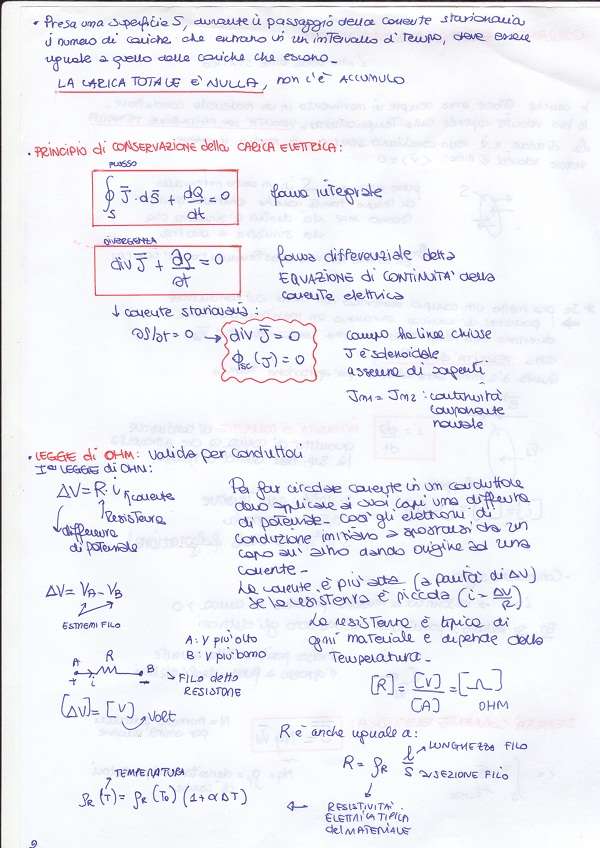 • Presa una superficie S, durante il passaggio della corrente stazionaria
il numero di cariche che entrano in un intervallo di tempo, deve essere
uguale a quello delle cariche che escono.
LA CARICA TOTALE E' NULLA, non c'è ACCUMULO
• PRINCIPIO di CONSERVAZIONE della CARICA ELETTRICA:
FLUSSO
∮S J̄·dS̄ + dQ/dt = 0 forma integrale
DIVERGENZA
div J̄ + ∂ρ/∂t = 0 forma differenziale della
EQUAZIONE DI CONTINUITA' della
corrente elettrica
↓ corrente stazionaria:
∂ρ/∂t = 0 → div J̄ = 0 campo ha linee chiuse
ϕSC (J̄) = 0 J è solenoidale
assenza di sorgenti
Jm1 = Jm2 : continuità
componente
normale
• LEGGE di OHM: valida per conduttori
Iª LEGGE di OHM:
ΔV = R · i → corrente
Resistenza
differenza
di potenziale
Per far circolare corrente in un conduttore
devo applicare ai suoi capi una differenza
di potenziale. Così gli elettroni di
conduzione iniziano a spostarsi da un
capo all'altro dando origine ad una
corrente.
ΔV = VA - VB
ESTREMI FILO
La corrente è più alta (a parità di ΔV)
se la resistenza è piccola (i = ΔV/R)
La resistenza è tipica di
ogni materiale e dipende dalla
Temperatura.
A: V più alto
B: V più basso
A R B
+ i -
→ FILO detto
RESISTORE
[ΔV] = [V] → Volt
[R] = [V]/[A] = [Ω]
OHM
R è anche uguale a:
R = ρR l/S
LUNGHEZZA FILO
SEZIONE FILO
RESISTIVITÀ
ELETTRICA TIPICA
del MATERIALE
TEMPERATURA
ρR (T) = ρR (T0) (1 + α ΔT)
9